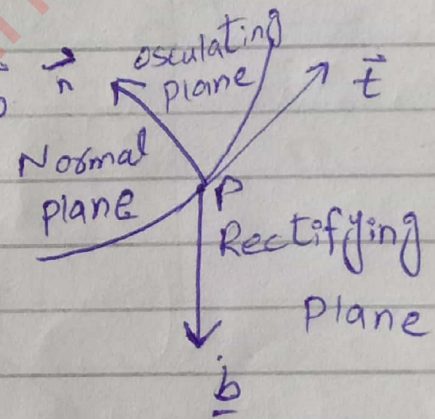 osculating
plane
n⃗
t⃗
Normal
plane
P
Rectifying
Plane
b